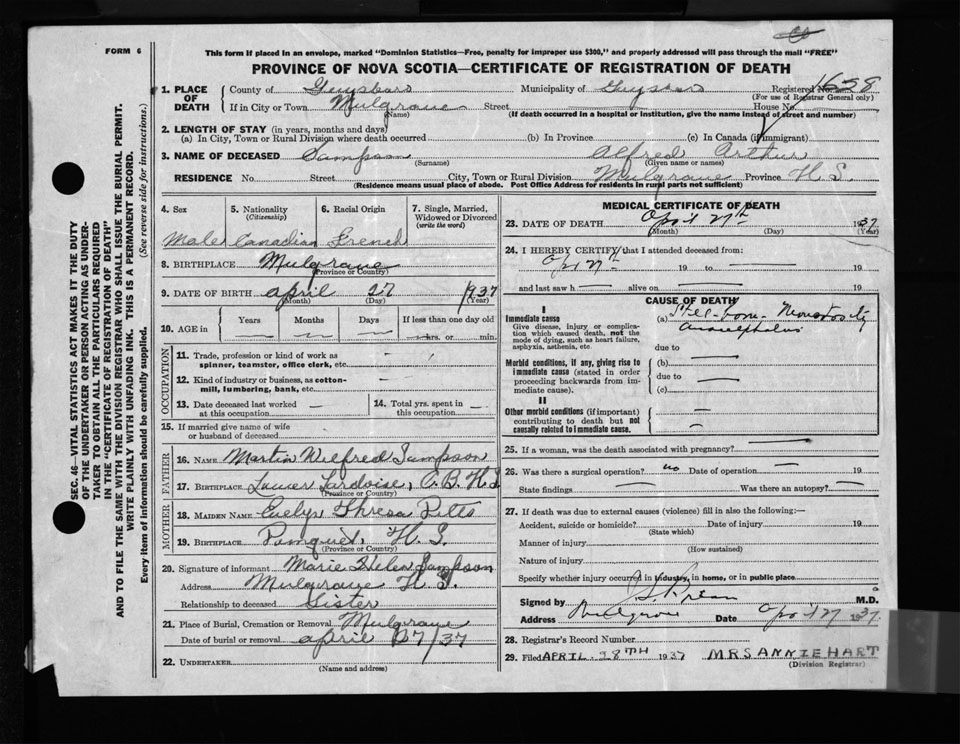 FORM 6
This form if placed in an envelope, marked "Dominion Statistics—Free, penalty for improper use $300," and properly addressed will pass through the mail "FREE"
PROVINCE OF NOVA SCOTIA—CERTIFICATE OF REGISTRATION OF DEATH
SEC. 46—VITAL STATISTICS ACT MAKES IT THE DUTY
OF THE UNDERTAKER OR PERSON ACTING AS UNDER-
TAKER TO OBTAIN ALL THE PARTICULARS REQUIRED
IN THE "CERTIFICATE OF REGISTRATION OF DEATH"
AND TO FILE THE SAME WITH THE DIVISION REGISTRAR WHO SHALL ISSUE THE BURIAL PERMIT.
WRITE PLAINLY WITH UNFADING INK. THIS IS A PERMANENT RECORD.
Every item of information should be carefully supplied. (See reverse side for instructions.)
1. PLACE OF DEATH County of Guysboro Municipality of Registered No. 1628
(For use of Registrar General only)
If in City or Town Mulgrave Street House No.
(Name) (If death occurred in a hospital or institution, give the name instead of street and number)
2. LENGTH OF STAY (in years, months and days)
(a) In City, Town or Rural Division where death occurred (b) In Province (c) In Canada (if immigrant)
3. NAME OF DECEASED Sampson Alfred Arthur
(Surname) (Given name or names)
RESIDENCE No. Street City, Town or Rural Division Mulgrave Province N.S.
(Residence means usual place of abode. Post Office Address for residents in rural parts not sufficient)
4. Sex 5. Nationality (Citizenship) 6. Racial Origin 7. Single, Married, Widowed or Divorced (write the word)
Male Canadian French
8. BIRTHPLACE Mulgrave
(Province or Country)
9. DATE OF BIRTH April 27 1937
(Month) (Day) (Year)
10. AGE in Years Months Days If less than one day old
hrs. or min.
OCCUPATION
11. Trade, profession or kind of work as spinner, teamster, office clerk, etc.
12. Kind of industry or business, as cotton-mill, lumbering, bank, etc.
13. Date deceased last worked at this occupation 14. Total yrs. spent in this occupation
15. If married give name of wife or husband of deceased
FATHER
16. NAME Martin Wilfred Sampson
17. BIRTHPLACE Lower Lardoise, C.B. N.S
(Province or Country)
MOTHER
18. MAIDEN NAME Evelyn Thresa Pitts
19. BIRTHPLACE Pomquet, N.S.
(Province or Country)
20. Signature of informant Marie Helen Sampson
Address Mulgrave N.S.
Relationship to deceased Sister
21. Place of Burial, Cremation or Removal Mulgrave
Date of burial or removal April 27/37
22. UNDERTAKER
(Name and address)
MEDICAL CERTIFICATE OF DEATH
23. DATE OF DEATH April 27th 1937
(Month) (Day) (Year)
24. I HEREBY CERTIFY that I attended deceased from:
19 to 19
and last saw h alive on 19
CAUSE OF DEATH
I
Immediate cause
Give disease, injury or complication which caused death, not the mode of dying, such as heart failure, asphyxia, asthenia, etc.
(a) Still-born - Monstrosity
Anencephalus
due to
Morbid conditions, if any, giving rise to immediate cause (stated in order proceeding backwards from immediate cause).
(b)
due to
(c)
II
Other morbid conditions (if important) contributing to death but not causally related to immediate cause.
25. If a woman, was the death associated with pregnancy?
26. Was there a surgical operation? no Date of operation 19
State findings Was there an autopsy?
27. If death was due to external causes (violence) fill in also the following:—
Accident, suicide or homicide? Date of injury 19
(State which)
Manner of injury
(How sustained)
Nature of injury
Specify whether injury occurred in industry, in home, or in public place
Signed by M.D.
Address Mulgrave Date April 27 1937
28. Registrar's Record Number
29. Filed APRIL. 28TH 1937 MRS ANNIE HART
(Division Registrar)